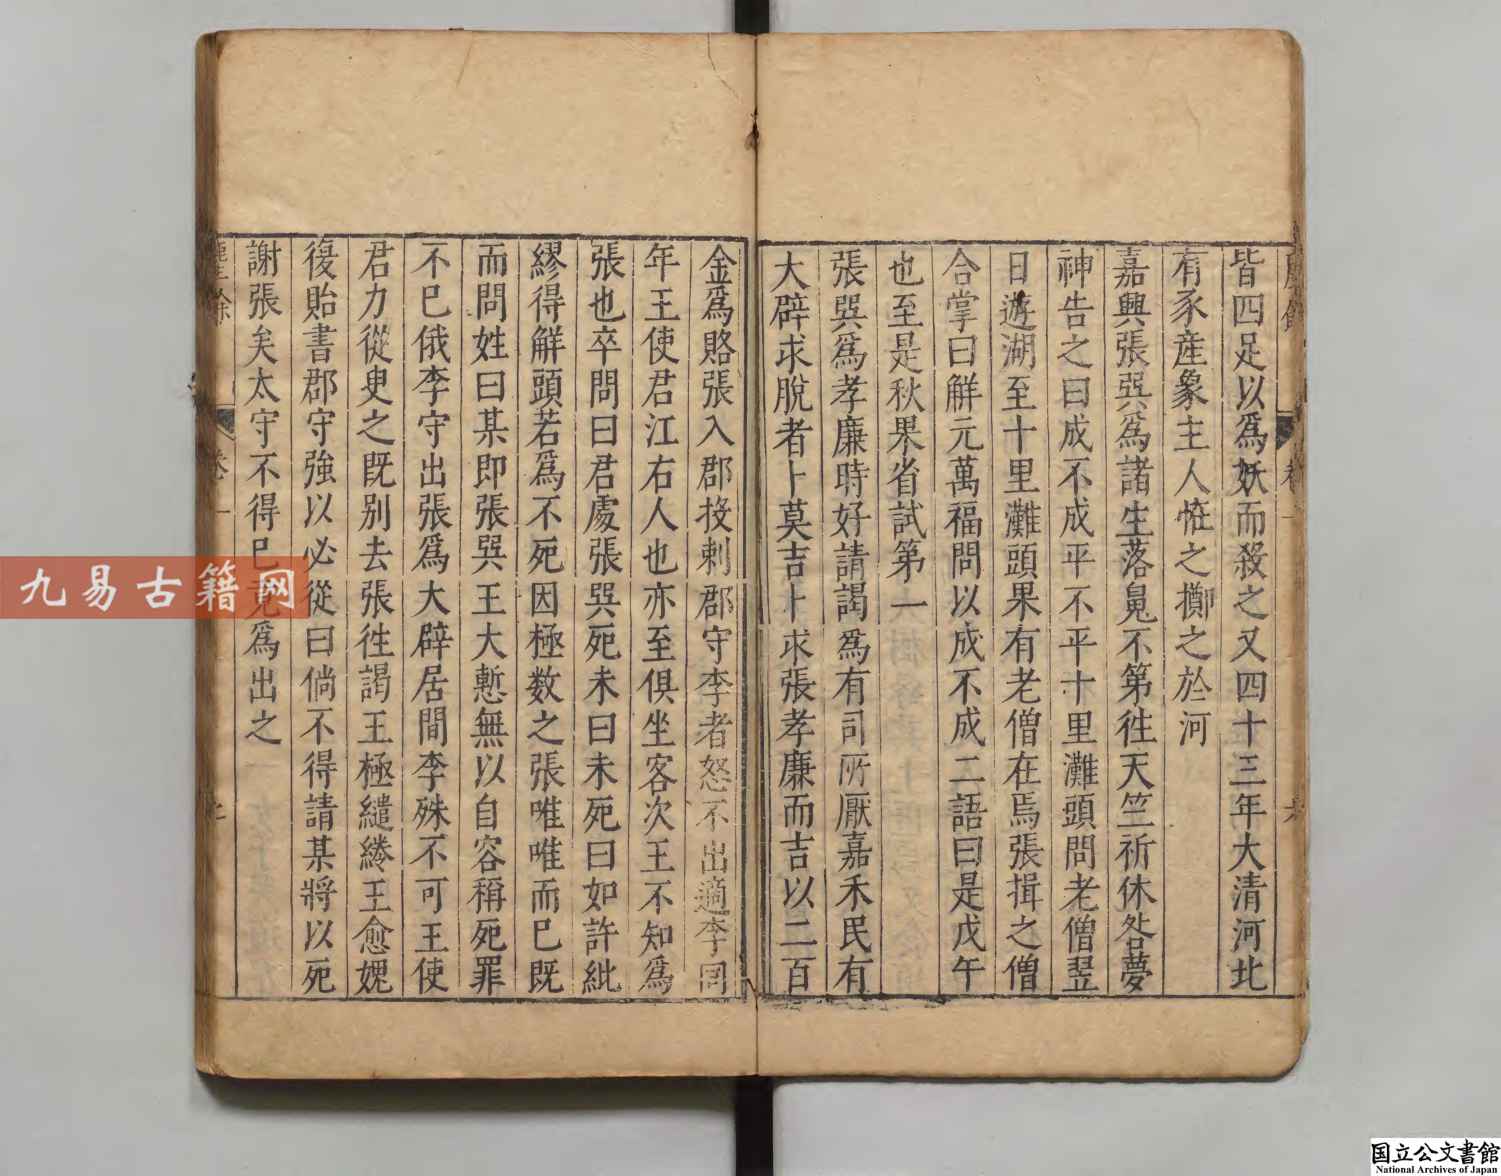 皆四足以爲妖而殺之又四十三年大清河北
有豕產象主人恠之擲之於河
嘉興張巽爲諸生落㝵不第徃天竺祈休咎夢
神告之曰成不成平不平十里灘頭問老僧翌
日遊湖至十里灘頭果有老僧在焉張揖之僧
合掌曰解元萬福問以成不成二語曰是戊午
也至是秋果省試第一
張巽爲孝廉時好請謁爲有司所厭嘉禾民有
大辟求脫者卜莫吉卜求張孝廉而吉以二百
金爲賂張入郡投刺郡守李者怒不出適李同
年王使君江右人也亦至俱坐客次王不知爲
張也卒問曰君處張巽死未曰未死曰如許紕
繆得解頭若爲不死因極数之張唯唯而已既
而問姓曰某即張巽王大慙無以自容稱死罪
不已俄李守出張爲大辟居間李殊不可王使
君力從臾之既别去張徃謁王極繾綣王愈媿
後貽書郡守強以必從曰倘不得請某將以死
謝張矣太守不得已爲出之
卷一
九易古籍网
国立公文書館
National Archives of Japan